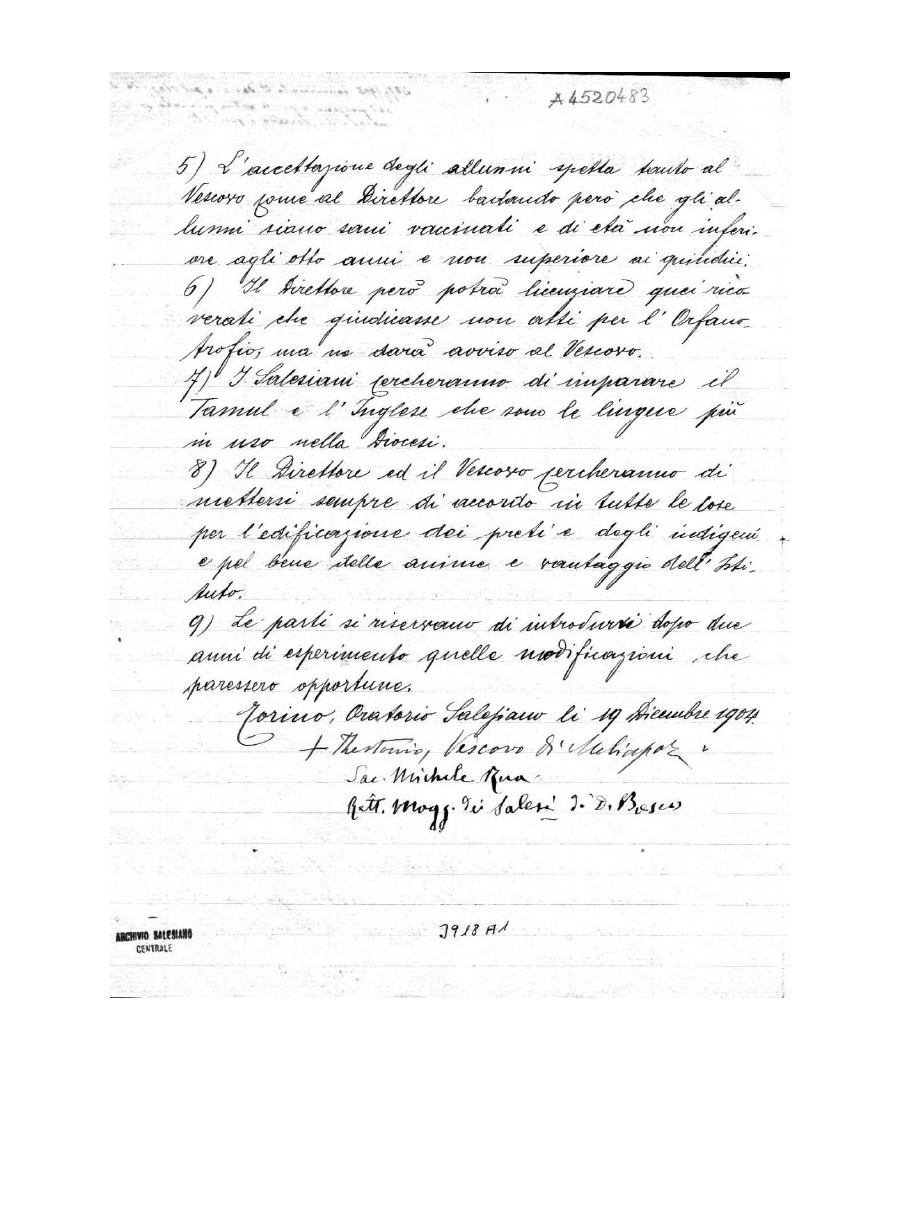 A4520483
5) L'accettazione degli allunni spetta tanto al
Vescovo come al Direttore badando però che gli al-
lunni siano sani vaccinati e di età non inferi-
ore agli otto anni e non superiore ai quindici.
6) Il Direttore però potrà licenziare quei rico-
verati che giudicasse non atti per l'Orfano-
trofio, ma ne darà avviso al Vescovo.
7) I Salesiani cercheranno di imparare il
Tamul e l'Inglese che sono le lingue più
in uso nella Diocesi.
8) Il Direttore ed il Vescovo cercheranno di
mettersi sempre di accordo in tutte le cose
per l'edificazione dei preti e degli indigeni
e pel bene delle anime e vantaggio dell'Isti-
tuto.
9) Le parti si riservano di introdurre dopo due
anni di esperimento quelle modificazioni che
paressero opportune.
Torino, Oratorio Salesiano li 19 Dicembre 1904.
+ Theotonio, Vescovo di Meliapor
Sac. Michele Rua
Rett. Magg. dei Salesi di D. Bosco
ARCHIVIO SALESIANO
CENTRALE
3918 A1